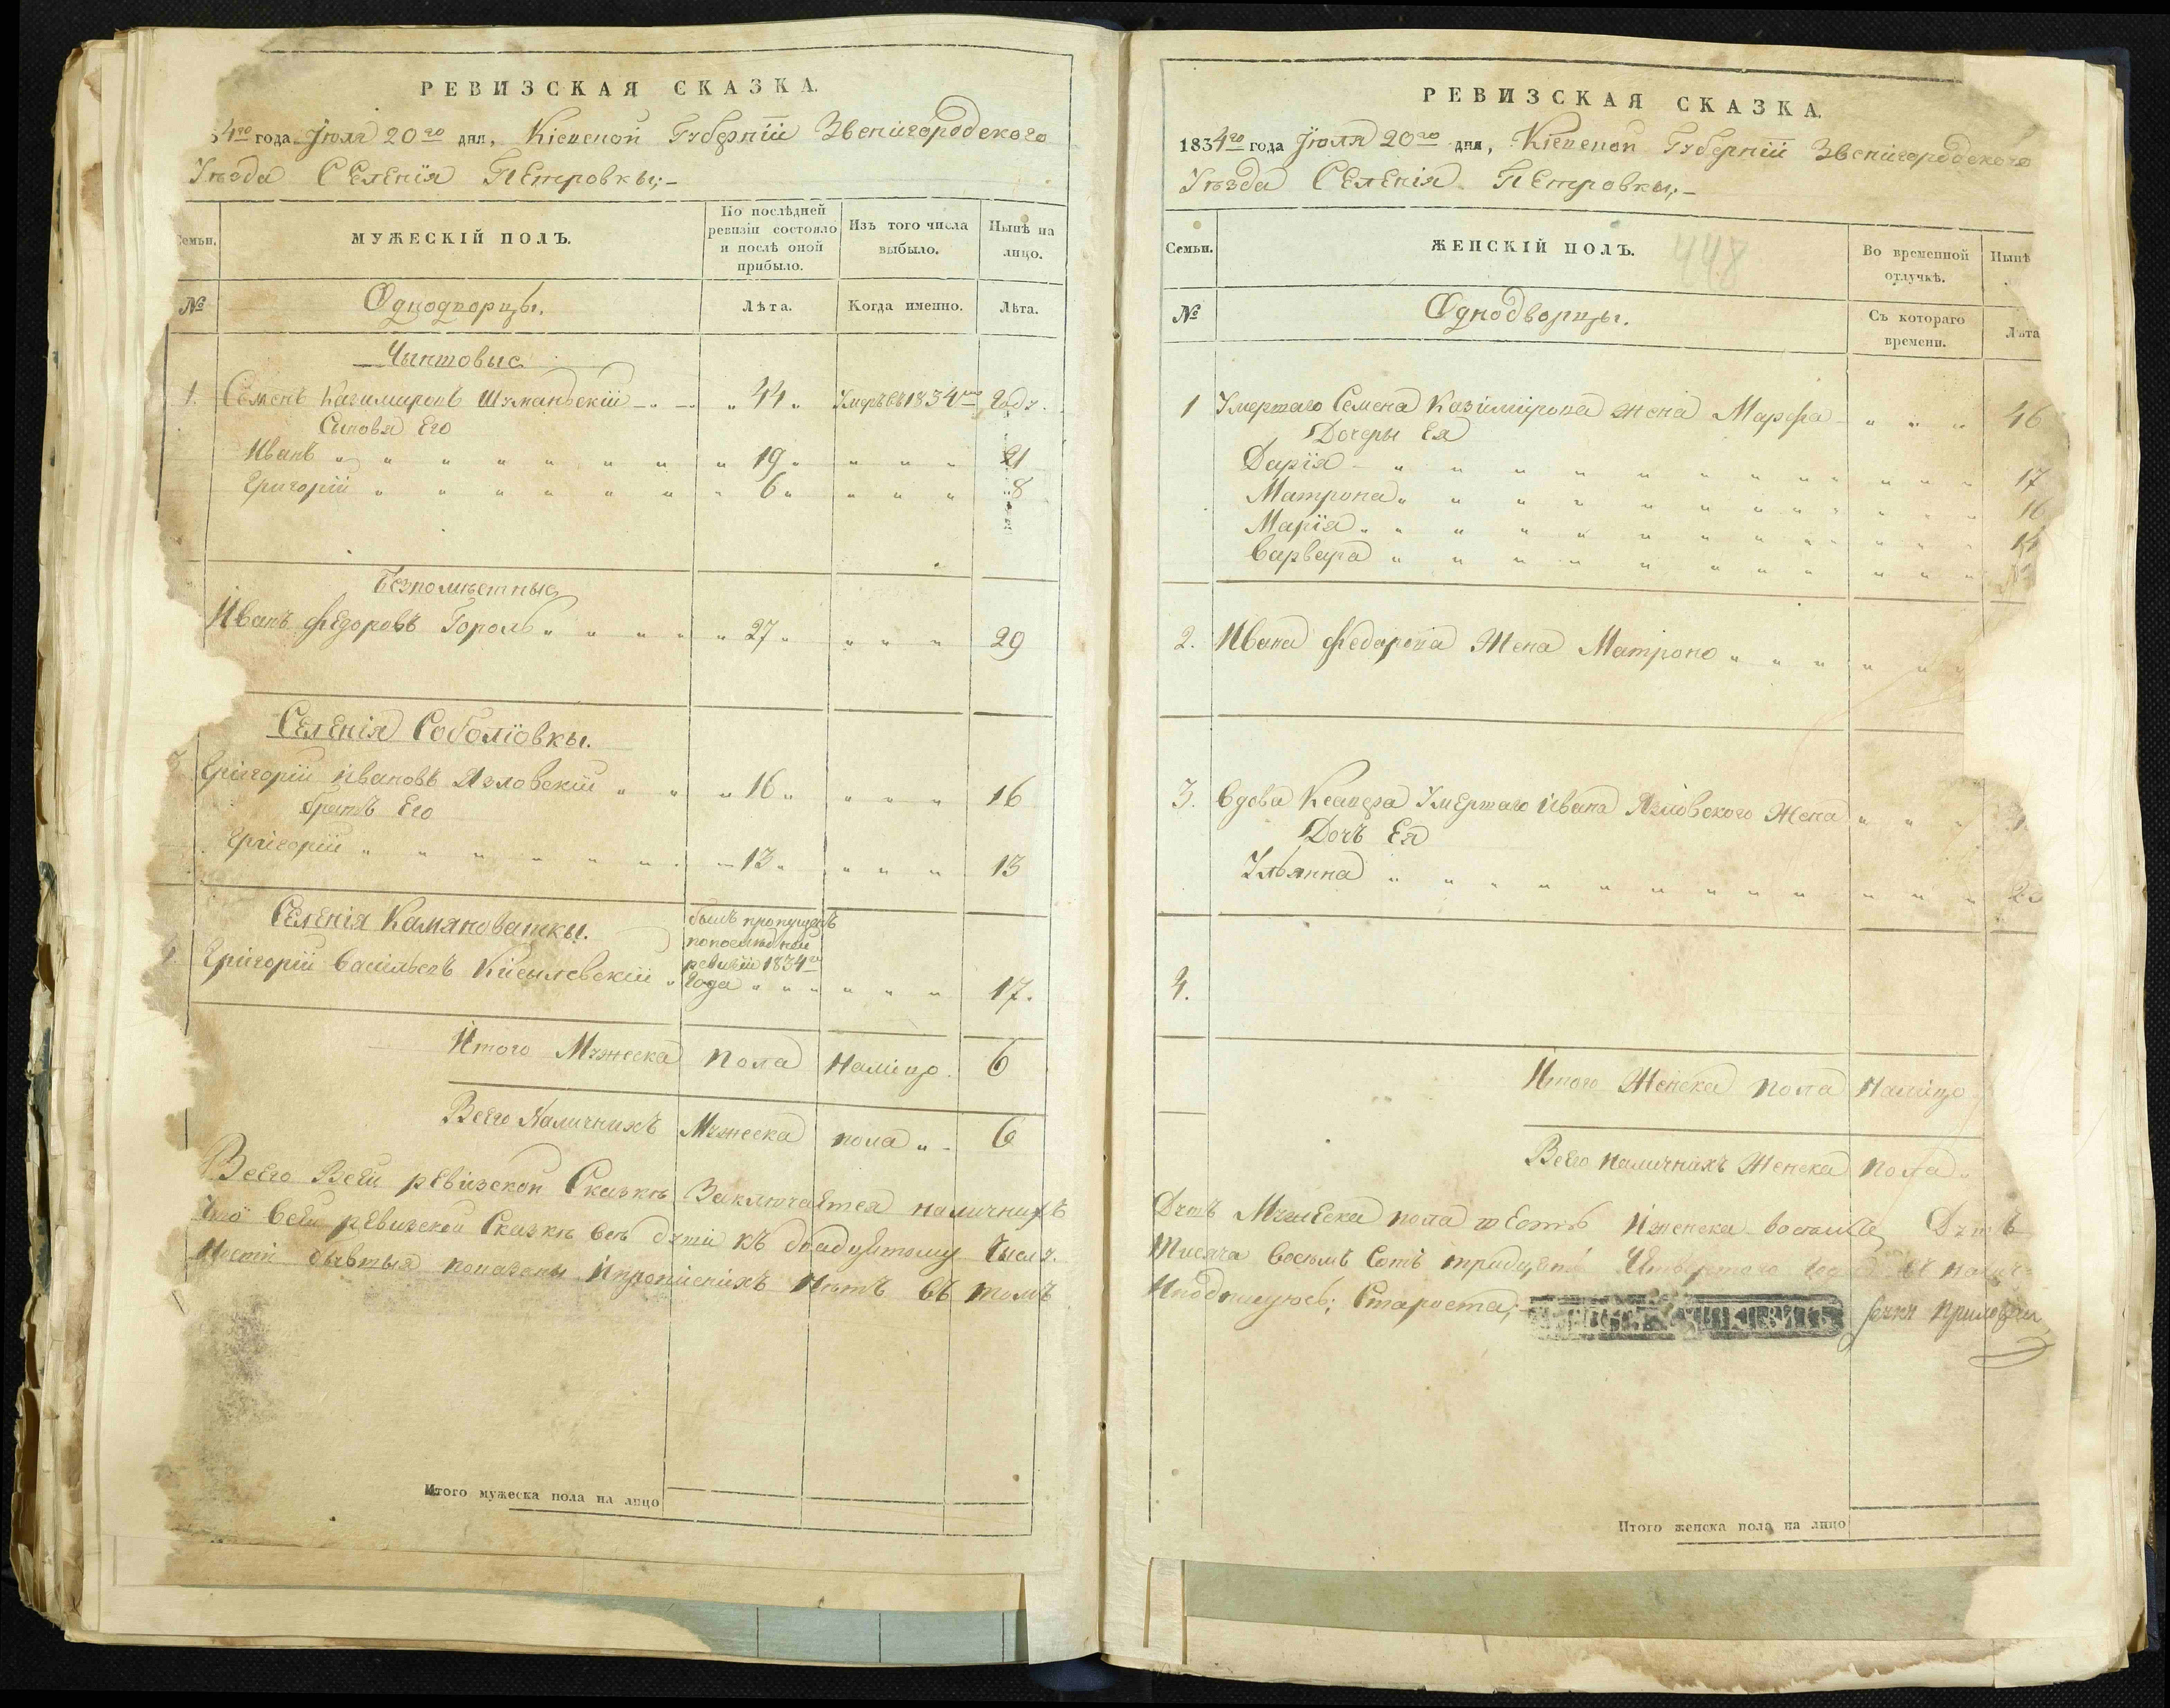 РЕВИЗСКАЯ СКАЗКА.
4го года Июля 20го дня, Кіевской Губерніи Звенигородского
Уѣзда Селенія Петровкы;-
Семьи.
МУЖЕСКІЙ ПОЛЪ.
По послѣдней ревизіи состояло и послѣ оной прибыло.
Изъ того числа выбыло.
Нынѣ на лицо.
№
Однодворцы.
Лѣта.
Когда именно.
Лѣта.
Чыншовые
1. Семенъ Казимировъ Шуманьскій 44 Умеръ въ 1834го Году.
Сыновя Его
Иванъ 19 21
Григорій 6 8
Безпомѣстные
Иванъ Федоровъ Гороль 27 29
Селенія Соболіовкы.
Григорій Ивановъ Язловскій 16 16
братъ Его
Григорій 13 13
Селенія Камяноваткы.
былъ пропущенъ
попослѣдней
ревизіи 1834го
Года
Григорій Васильевъ Кисылевскій 17.
Итого Мужеска Пола Налицо 6
Всего Наличнихъ Мужеска пола 6
Всего Всей ревизской Сказкѣ Заключается наличнихъ
Что Всей ревизской Сказкѣ всѣ души къ двадцятому Числу.
показаны Ипрописнихъ Нѣтъ въ томъ
Итого мужеска пола на лицо
РЕВИЗСКАЯ СКАЗКА.
1834го года Июля 20го дня, Кіевской Губерніи Звенигородского
Уѣзда Селенія Петровкы;-
Семьи.
ЖЕНСКІЙ ПОЛЪ.
448
Во временной отлучкѣ.
Нынѣ
№
Однодворцы.
Съ котораго времени.
Лѣта
1 Умершаго Семена Казимірова жена Марфа 46
Дочеры Ея
Дарія 17
Матрона 16
Марія 14
Варвара
2. Ивана Федарова Жена Матроно
3. Вдова Умершаго Ивана Язловского Жена
Дочъ Ея
Ульянна
4.
Итого Женска пола Налицо
Всего наличнихъ Женска Пола
Душъ Мужеска пола шесть Иженска восемъ Душъ
Тисяча Восемъ Сотъ тридцять Четвертого
Иподписуюсь; Староста,